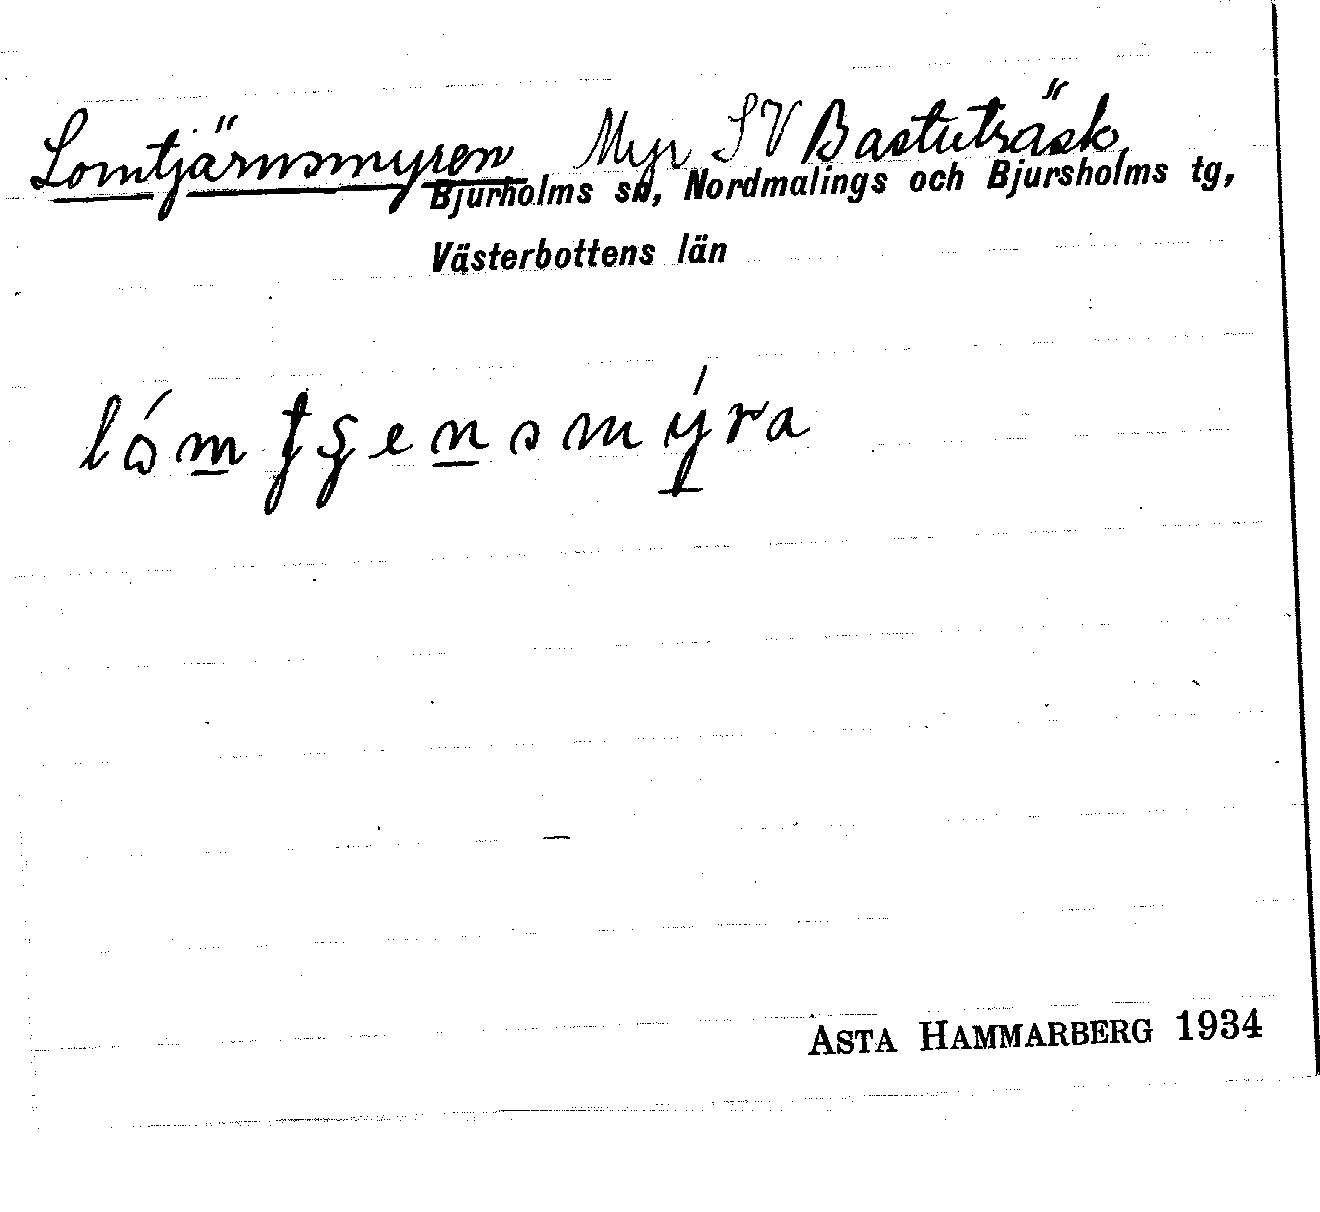 Lomtjärnsmyren Myr SV Bastuträsk
Bjurholms sn, Nordmalings och Bjursholms tg,
Västerbottens län
ASTA HAMMARBERG 1934